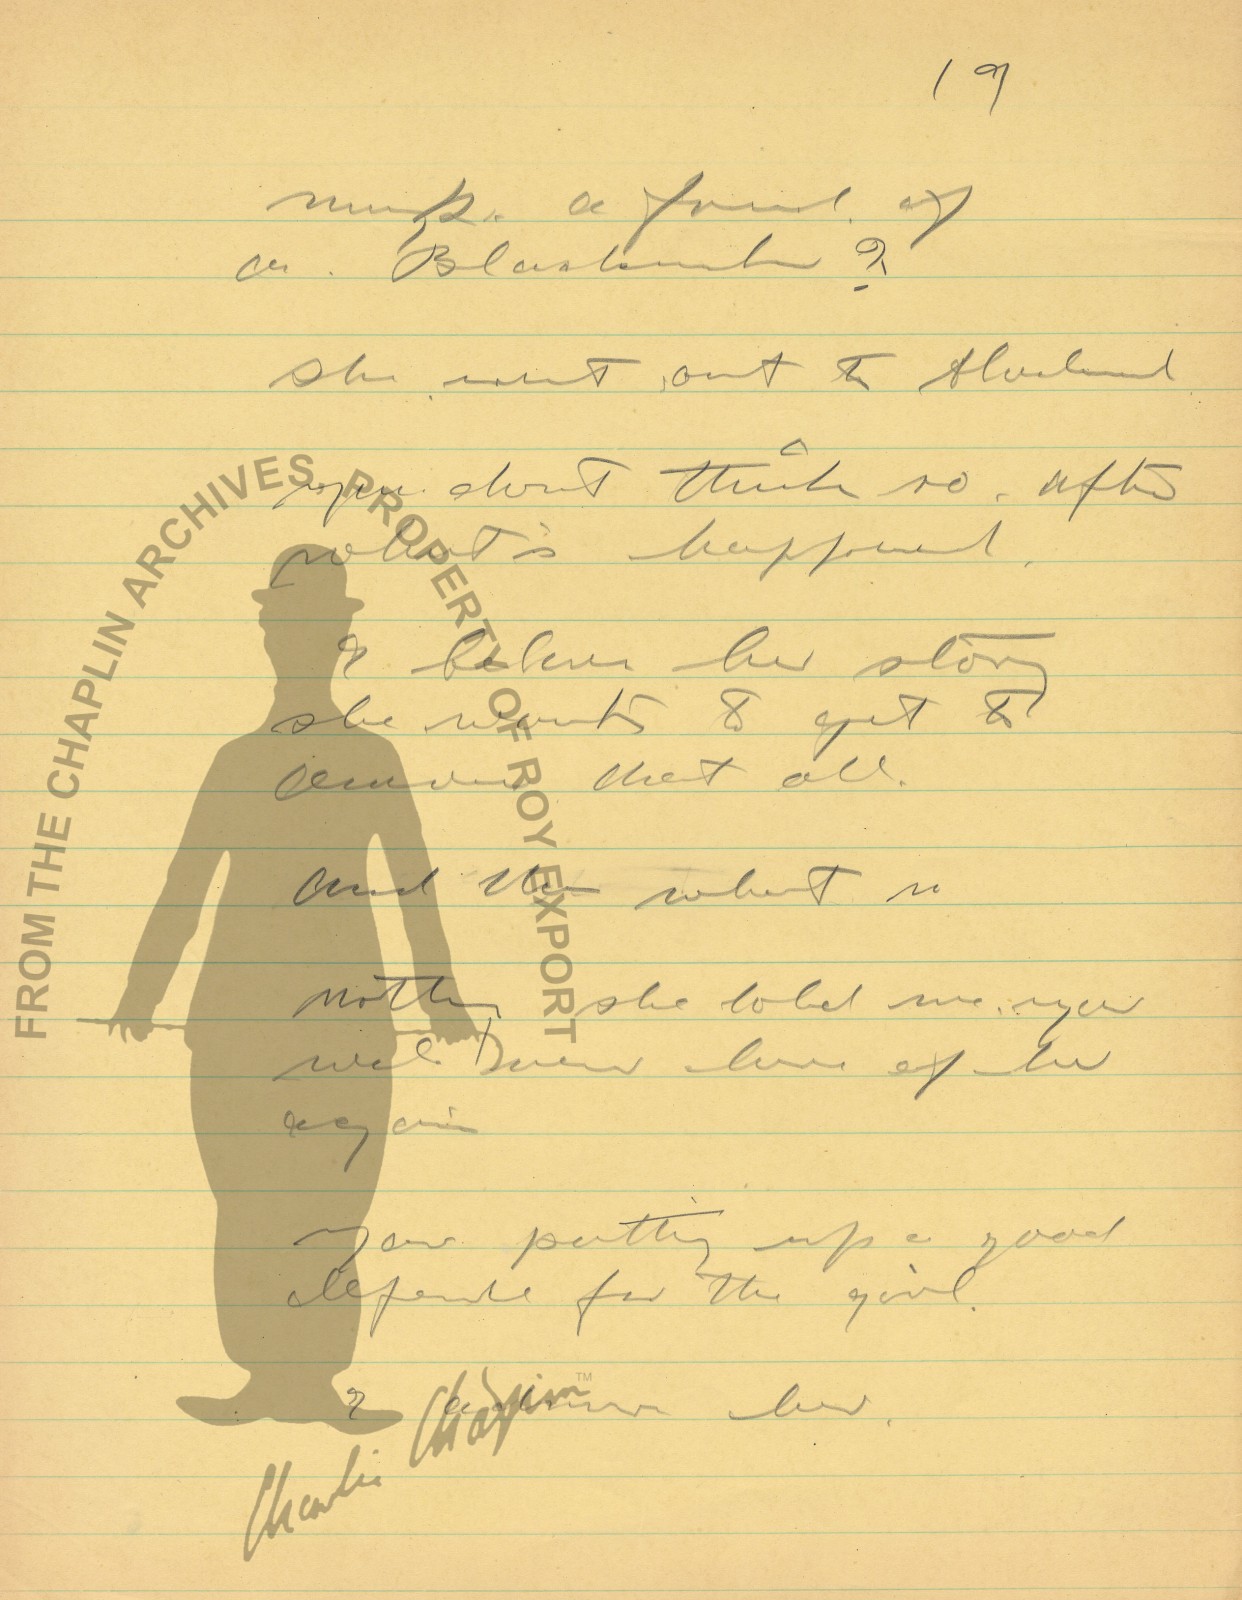 19
a friend of
or
she went out to
you dont think so. after
what's happened.
I believe her story
she wants to get to
that all.
and then what
nothing she told me. you
will never hear of her
again
your putting up a good
defense for the girl.
I her.
FROM THE CHAPLIN ARCHIVES, PROPERTY OF ROY EXPORT
Charlie Chaplin™